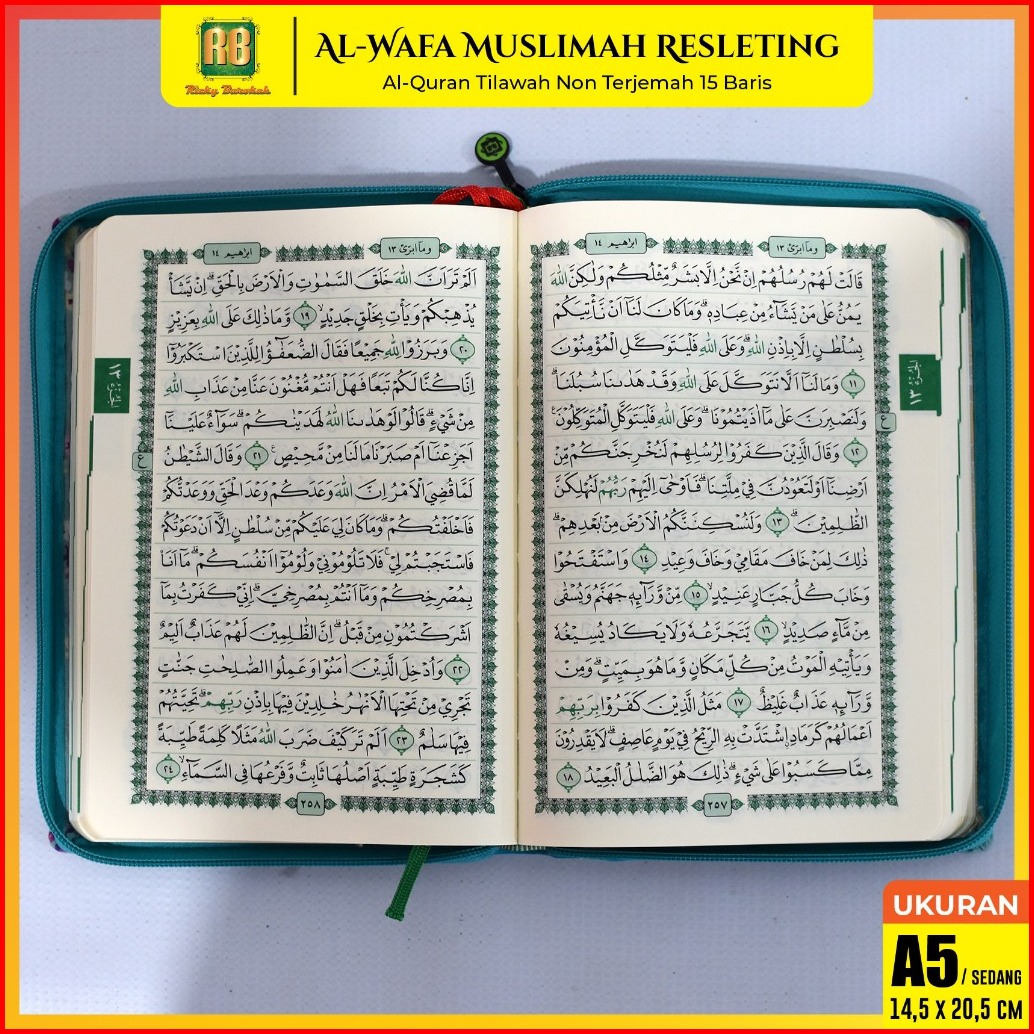 RB
Rizky Barokah
AL-WAFA MUSLIMAH RESLETING
Al-Quran Tilawah Non Terjemah 15 Baris
وما ابرئ ١٣
ابراهيم ١٤
الجزء ١٣
قَالَتْ لَهُمْ رُسُلُهُمْ اِنْ نَّحْنُ اِلَّا بَشَرٌ مِّثْلُكُمْ وَلٰكِنَّ اللّٰهَ
يَمُنُّ عَلٰى مَنْ يَّشَاۤءُ مِنْ عِبَادِهٖۗ وَمَا كَانَ لَنَآ اَنْ نَّأْتِيَكُمْ
بِسُلْطٰنٍ اِلَّا بِاِذْنِ اللّٰهِ ۗوَعَلَى اللّٰهِ فَلْيَتَوَكَّلِ الْمُؤْمِنُوْنَ
١١ وَمَا لَنَآ اَلَّا نَتَوَكَّلَ عَلَى اللّٰهِ وَقَدْ هَدٰىنَا سُبُلَنَاۗ
وَلَنَصْبِرَنَّ عَلٰى مَآ اٰذَيْتُمُوْنَاۗ وَعَلَى اللّٰهِ فَلْيَتَوَكَّلِ الْمُتَوَكِّلُوْنَ ࣖ
ع
١٢ وَقَالَ الَّذِيْنَ كَفَرُوْا لِرُسُلِهِمْ لَنُخْرِجَنَّكُمْ مِّنْ
اَرْضِنَآ اَوْ لَتَعُوْدُنَّ فِيْ مِلَّتِنَاۗ فَاَوْحٰٓى اِلَيْهِمْ رَبُّهُمْ لَنُهْلِكَنَّ
الظّٰلِمِيْنَۗ ١٣ وَلَنُسْكِنَنَّكُمُ الْاَرْضَ مِنْۢ بَعْدِهِمْۗ
ذٰلِكَ لِمَنْ خَافَ مَقَامِيْ وَخَافَ وَعِيْدِ ١٤ وَاسْتَفْتَحُوْا
وَخَابَ كُلُّ جَبَّارٍ عَنِيْدٍۙ ١٥ مِّنْ وَّرَاۤىِٕهٖ جَهَنَّمُ وَيُسْقٰى
مِنْ مَّاۤءٍ صَدِيْدٍۙ ١٦ يَّتَجَرَّعُهٗ وَلَا يَكَادُ يُسِيْغُهٗ
وَيَأْتِيْهِ الْمَوْتُ مِنْ كُلِّ مَكَانٍ وَّمَا هُوَ بِمَيِّتٍۗ وَمِنْ
وَّرَاۤىِٕهٖ عَذَابٌ غَلِيْظٌ ١٧ مَثَلُ الَّذِيْنَ كَفَرُوْا بِرَبِّهِمْ
اَعْمَالُهُمْ كَرَمَادِ ِۨاشْتَدَّتْ بِهِ الرِّيْحُ فِيْ يَوْمٍ عَاصِفٍۗ لَا يَقْدِرُوْنَ
مِمَّا كَسَبُوْا عَلٰى شَيْءٍۗ ذٰلِكَ هُوَ الضَّلٰلُ الْبَعِيْدُ ١٨
٢٥٧
وما ابرئ ١٣
ابراهيم ١٤
الجزء ١٣
اَلَمْ تَرَ اَنَّ اللّٰهَ خَلَقَ السَّمٰوٰتِ وَالْاَرْضَ بِالْحَقِّۗ اِنْ يَّشَأْ
يُذْهِبْكُمْ وَيَأْتِ بِخَلْقٍ جَدِيْدٍۙ ١٩ وَّمَا ذٰلِكَ عَلَى اللّٰهِ بِعَزِيْزٍ
٢٠ وَبَرَزُوْا لِلّٰهِ جَمِيْعًا فَقَالَ الضُّعَفٰۤؤُا لِلَّذِيْنَ اسْتَكْبَرُوْٓا
اِنَّا كُنَّا لَكُمْ تَبَعًا فَهَلْ اَنْتُمْ مُّغْنُوْنَ عَنَّا مِنْ عَذَابِ اللّٰهِ
مِنْ شَيْءٍۗ قَالُوْا لَوْ هَدٰىنَا اللّٰهُ لَهَدَيْنٰكُمْۗ سَوَاۤءٌ عَلَيْنَآ
اَجَزِعْنَآ اَمْ صَبَرْنَا مَا لَنَا مِنْ مَّحِيْصٍ ࣖ ٢١ وَقَالَ الشَّيْطٰنُ
ع
لَمَّا قُضِيَ الْاَمْرُ اِنَّ اللّٰهَ وَعَدَكُمْ وَعْدَ الْحَقِّ وَوَعَدْتُّكُمْ
فَاَخْلَفْتُكُمْۗ وَمَا كَانَ لِيَ عَلَيْكُمْ مِّنْ سُلْطٰنٍ اِلَّآ اَنْ دَعَوْتُكُمْ
فَاسْتَجَبْتُمْ لِيْۚ فَلَا تَلُوْمُوْنِيْ وَلُوْمُوْٓا اَنْفُسَكُمْۗ مَآ اَنَا۠
بِمُصْرِخِكُمْ وَمَآ اَنْتُمْ بِمُصْرِخِيَّۗ اِنِّيْ كَفَرْتُ بِمَآ
اَشْرَكْتُمُوْنِ مِنْ قَبْلُۗ اِنَّ الظّٰلِمِيْنَ لَهُمْ عَذَابٌ اَلِيْمٌ
٢٢ وَاُدْخِلَ الَّذِيْنَ اٰمَنُوْا وَعَمِلُوا الصّٰلِحٰتِ جَنّٰتٍ
تَجْرِيْ مِنْ تَحْتِهَا الْاَنْهٰرُ خٰلِدِيْنَ فِيْهَا بِاِذْنِ رَبِّهِمْۗ تَحِيَّتُهُمْ
فِيْهَا سَلٰمٌ ٢٣ اَلَمْ تَرَ كَيْفَ ضَرَبَ اللّٰهُ مَثَلًا كَلِمَةً طَيِّبَةً
كَشَجَرَةٍ طَيِّبَةٍ اَصْلُهَا ثَابِتٌ وَّفَرْعُهَا فِى السَّمَاۤءِۙ ٢٤
٢٥٨
UKURAN
A5 / SEDANG
14,5 X 20,5 CM